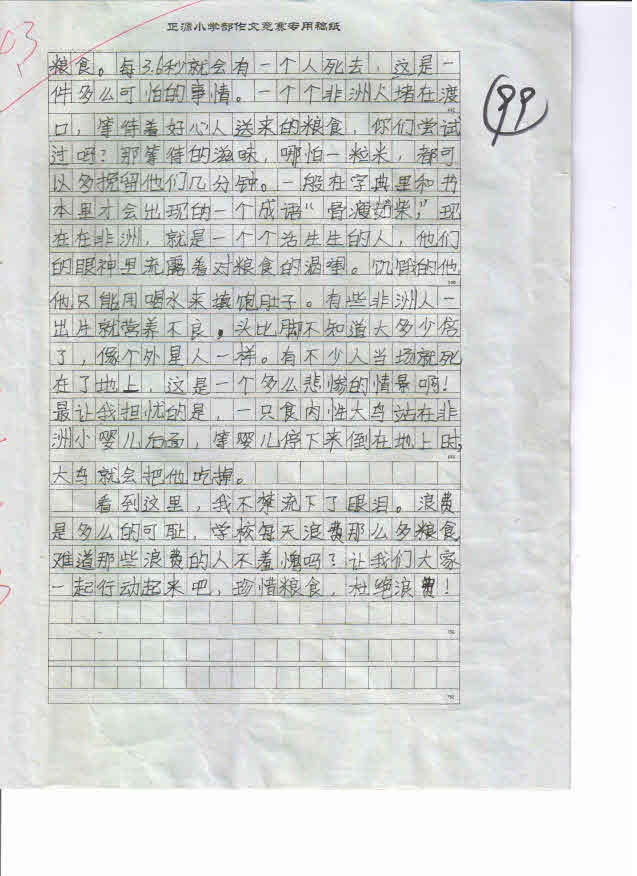 正源小学部作文竞赛专用稿纸
99
粮食。每3.6秒就会有一个人死去，这是一
件多么可怕的事情。一个个非洲人堵在渡
口，等待着好心人送来的粮食，你们尝试
过吗？那等待的滋味，哪怕一粒米，都可
以多挽留他们几分钟。一般在字典里和书
本里才会出现的一个成语“骨瘦如柴”，现
在在非洲，就是一个个活生生的人，他们
的眼神里流露着对粮食的渴望。饥饿的他
他只能用喝水来填饱肚子。有些非洲人一
出生就营养不良。头比脚不知道大多少倍
了，像个外星人一样。有不少人当场就死
在了地上，这是一个多么悲惨的情景啊！
最让我担忧的是，一只食肉性大鸟站在非
洲小婴儿后面，等婴儿停下来倒在地上时，
大鸟就会把他吃掉。
看到这里，我不禁流下了眼泪。浪费
是多么的可耻，学校每天浪费那么多粮食
难道那些浪费的人不羞愧吗？让我们大家
一起行动起来吧，珍惜粮食，杜绝浪费！